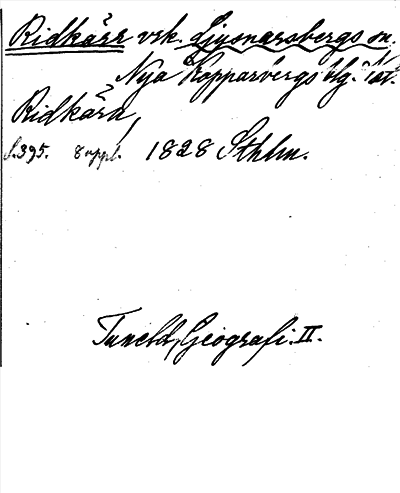 Ridkärr vsk. Ljusnarsbergs sn.
Nya Kopparbergs blg. Väst.
Ridkärn,
S. 395. 8 uppl. 1828 Sthlm.
Tuneld, Geografi. II.